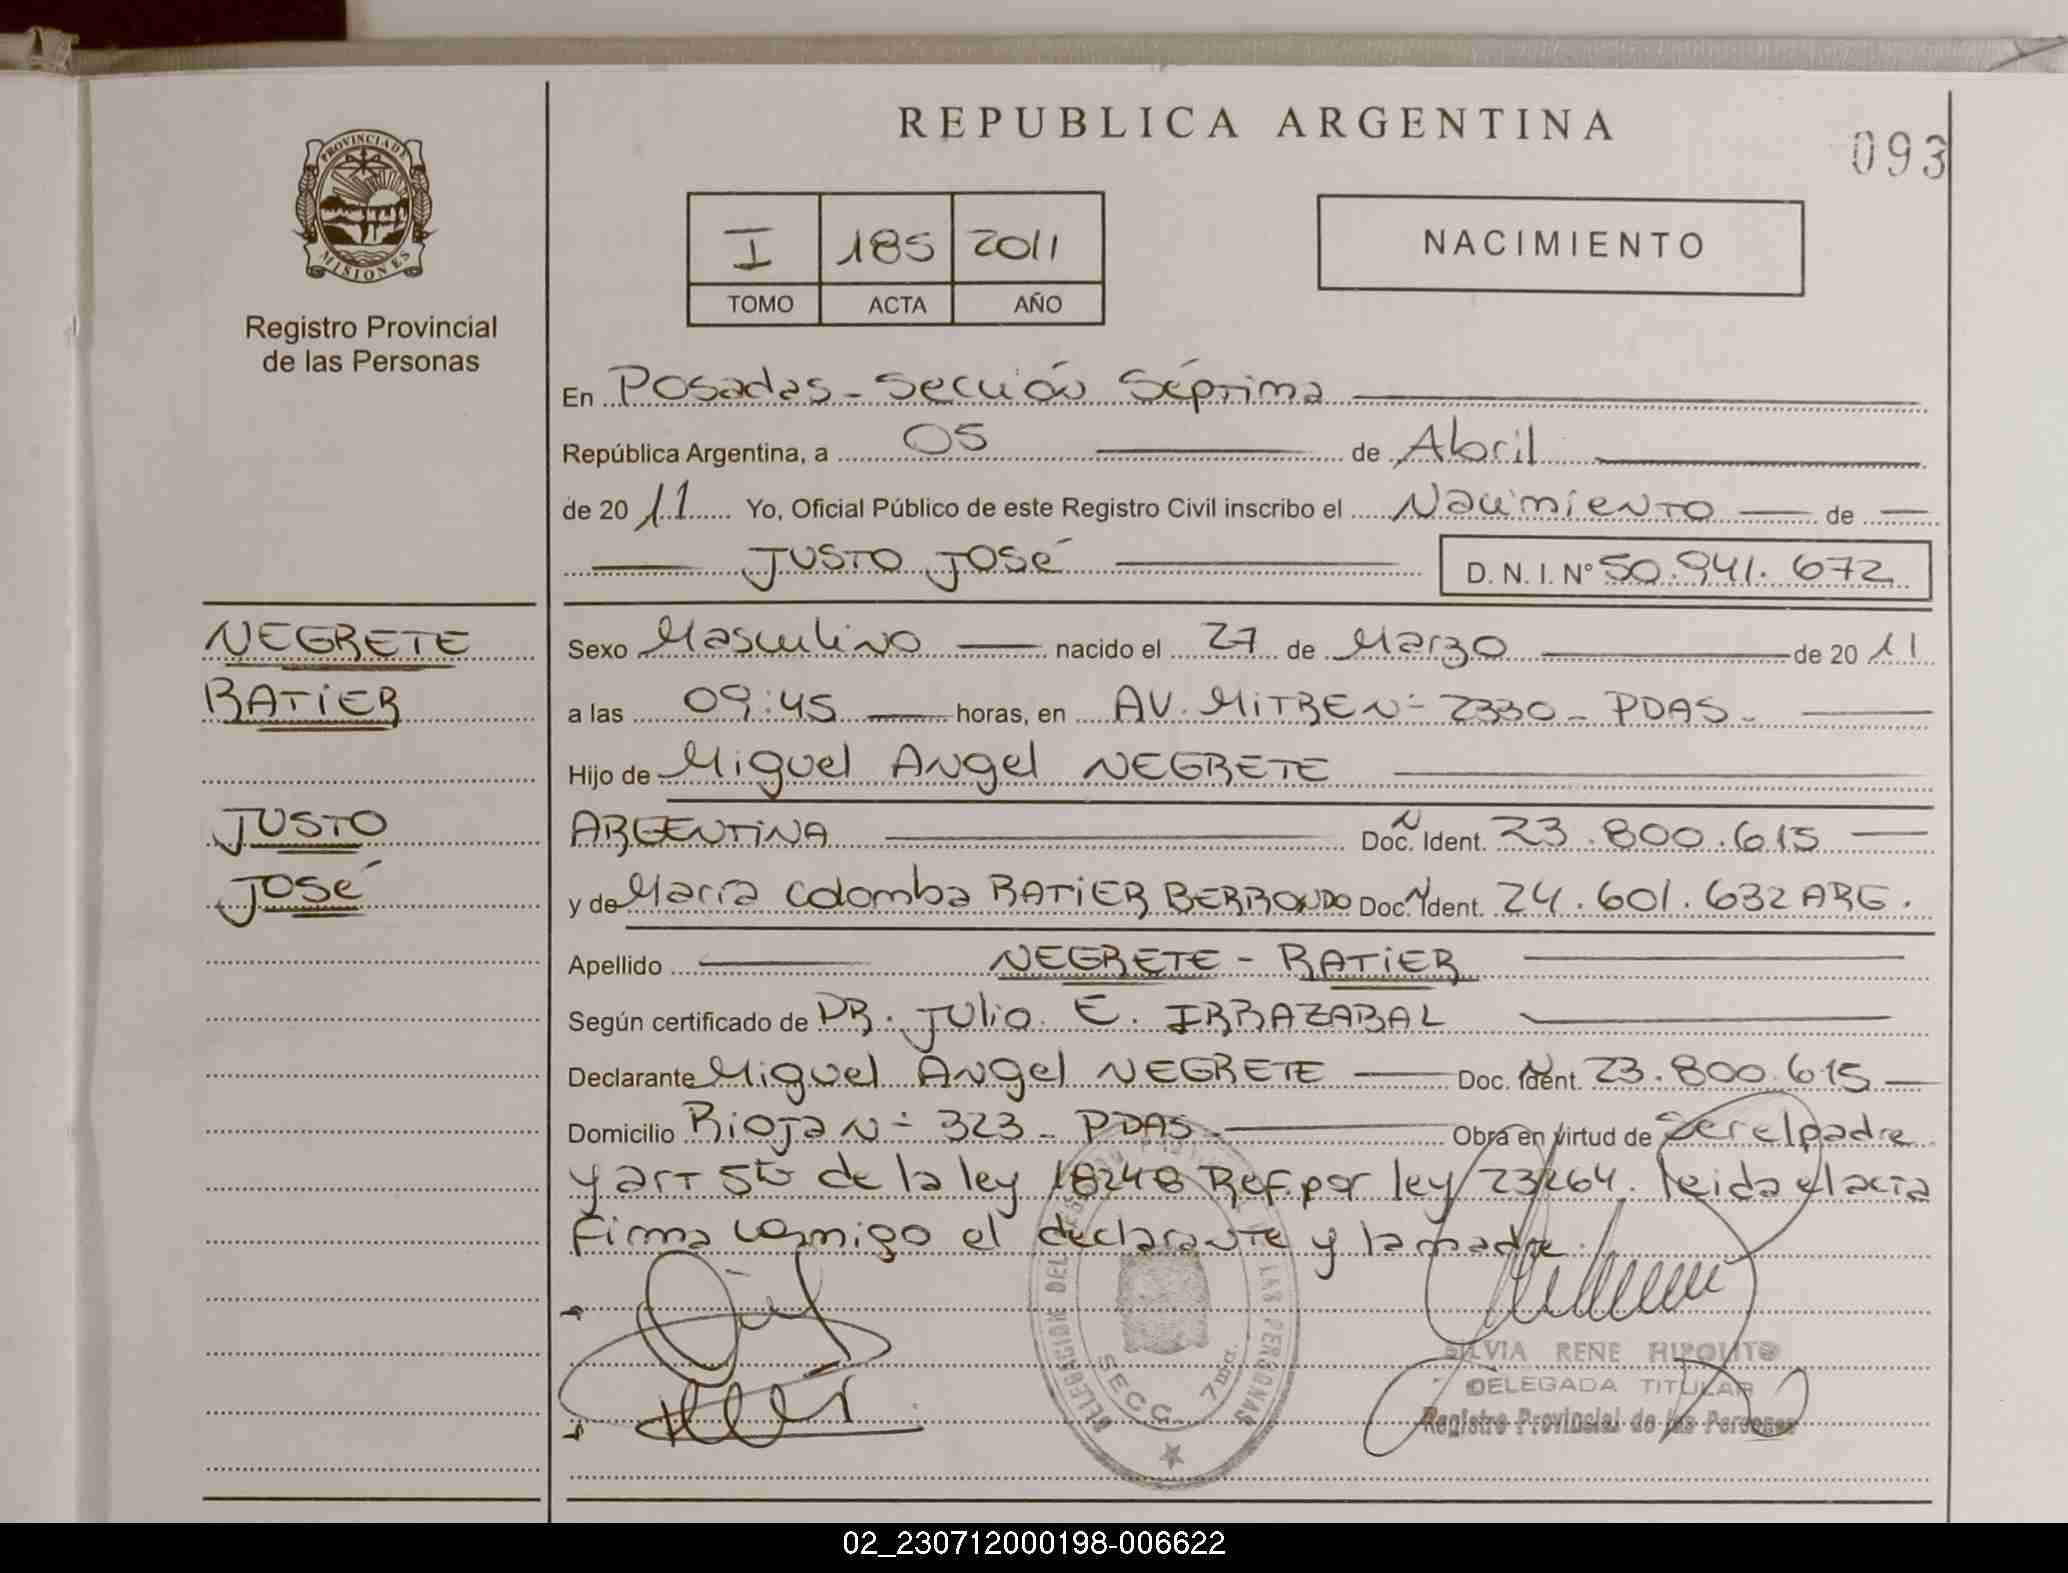 REPUBLICA ARGENTINA
093
PROVINCIA DE MISIONES
Registro Provincial
de las Personas
I 185 2011
TOMO ACTA AÑO
NACIMIENTO
En Posadas - Sección Séptima
República Argentina, a 05 de Abril
de 2011 Yo, Oficial Público de este Registro Civil inscribo el Nacimiento de
JUSTO JOSÉ D.N.I. N° 50.941.672
NEGRETE
RATIER
JUSTO
JOSÉ
Sexo Masculino nacido el 27 de Marzo de 2011
a las 09:45 horas, en AV. MITRE N- 2330 - PDAS -
Hijo de Miguel Angel NEGRETE
ARGENTINA Doc. N Ident. 23.800.615
y de María Colomba RATIER BERRONDO Doc. N Ident. 24.601.632 ARG.
Apellido NEGRETE - RATIER
Según certificado de DR. Julio E. IRRAZABAL
Declarante Miguel Angel NEGRETE Doc. N Ident. 23.800.615
Domicilio Rioja N- 323 - PDAS - Obra en virtud de Ser el padre
y art 5to de la ley 18248 Ref. por ley 23264. leida el acta
Firma conmigo el declarante y la madre.
DELEGACION DEL REGISTRO PROVINCIAL DE LAS PERSONAS
SECC. 7ma.
SILVIA RENE HIPOLITO
DELEGADA TITULAR
Registro Provincial de las Personas
02_230712000198-006622